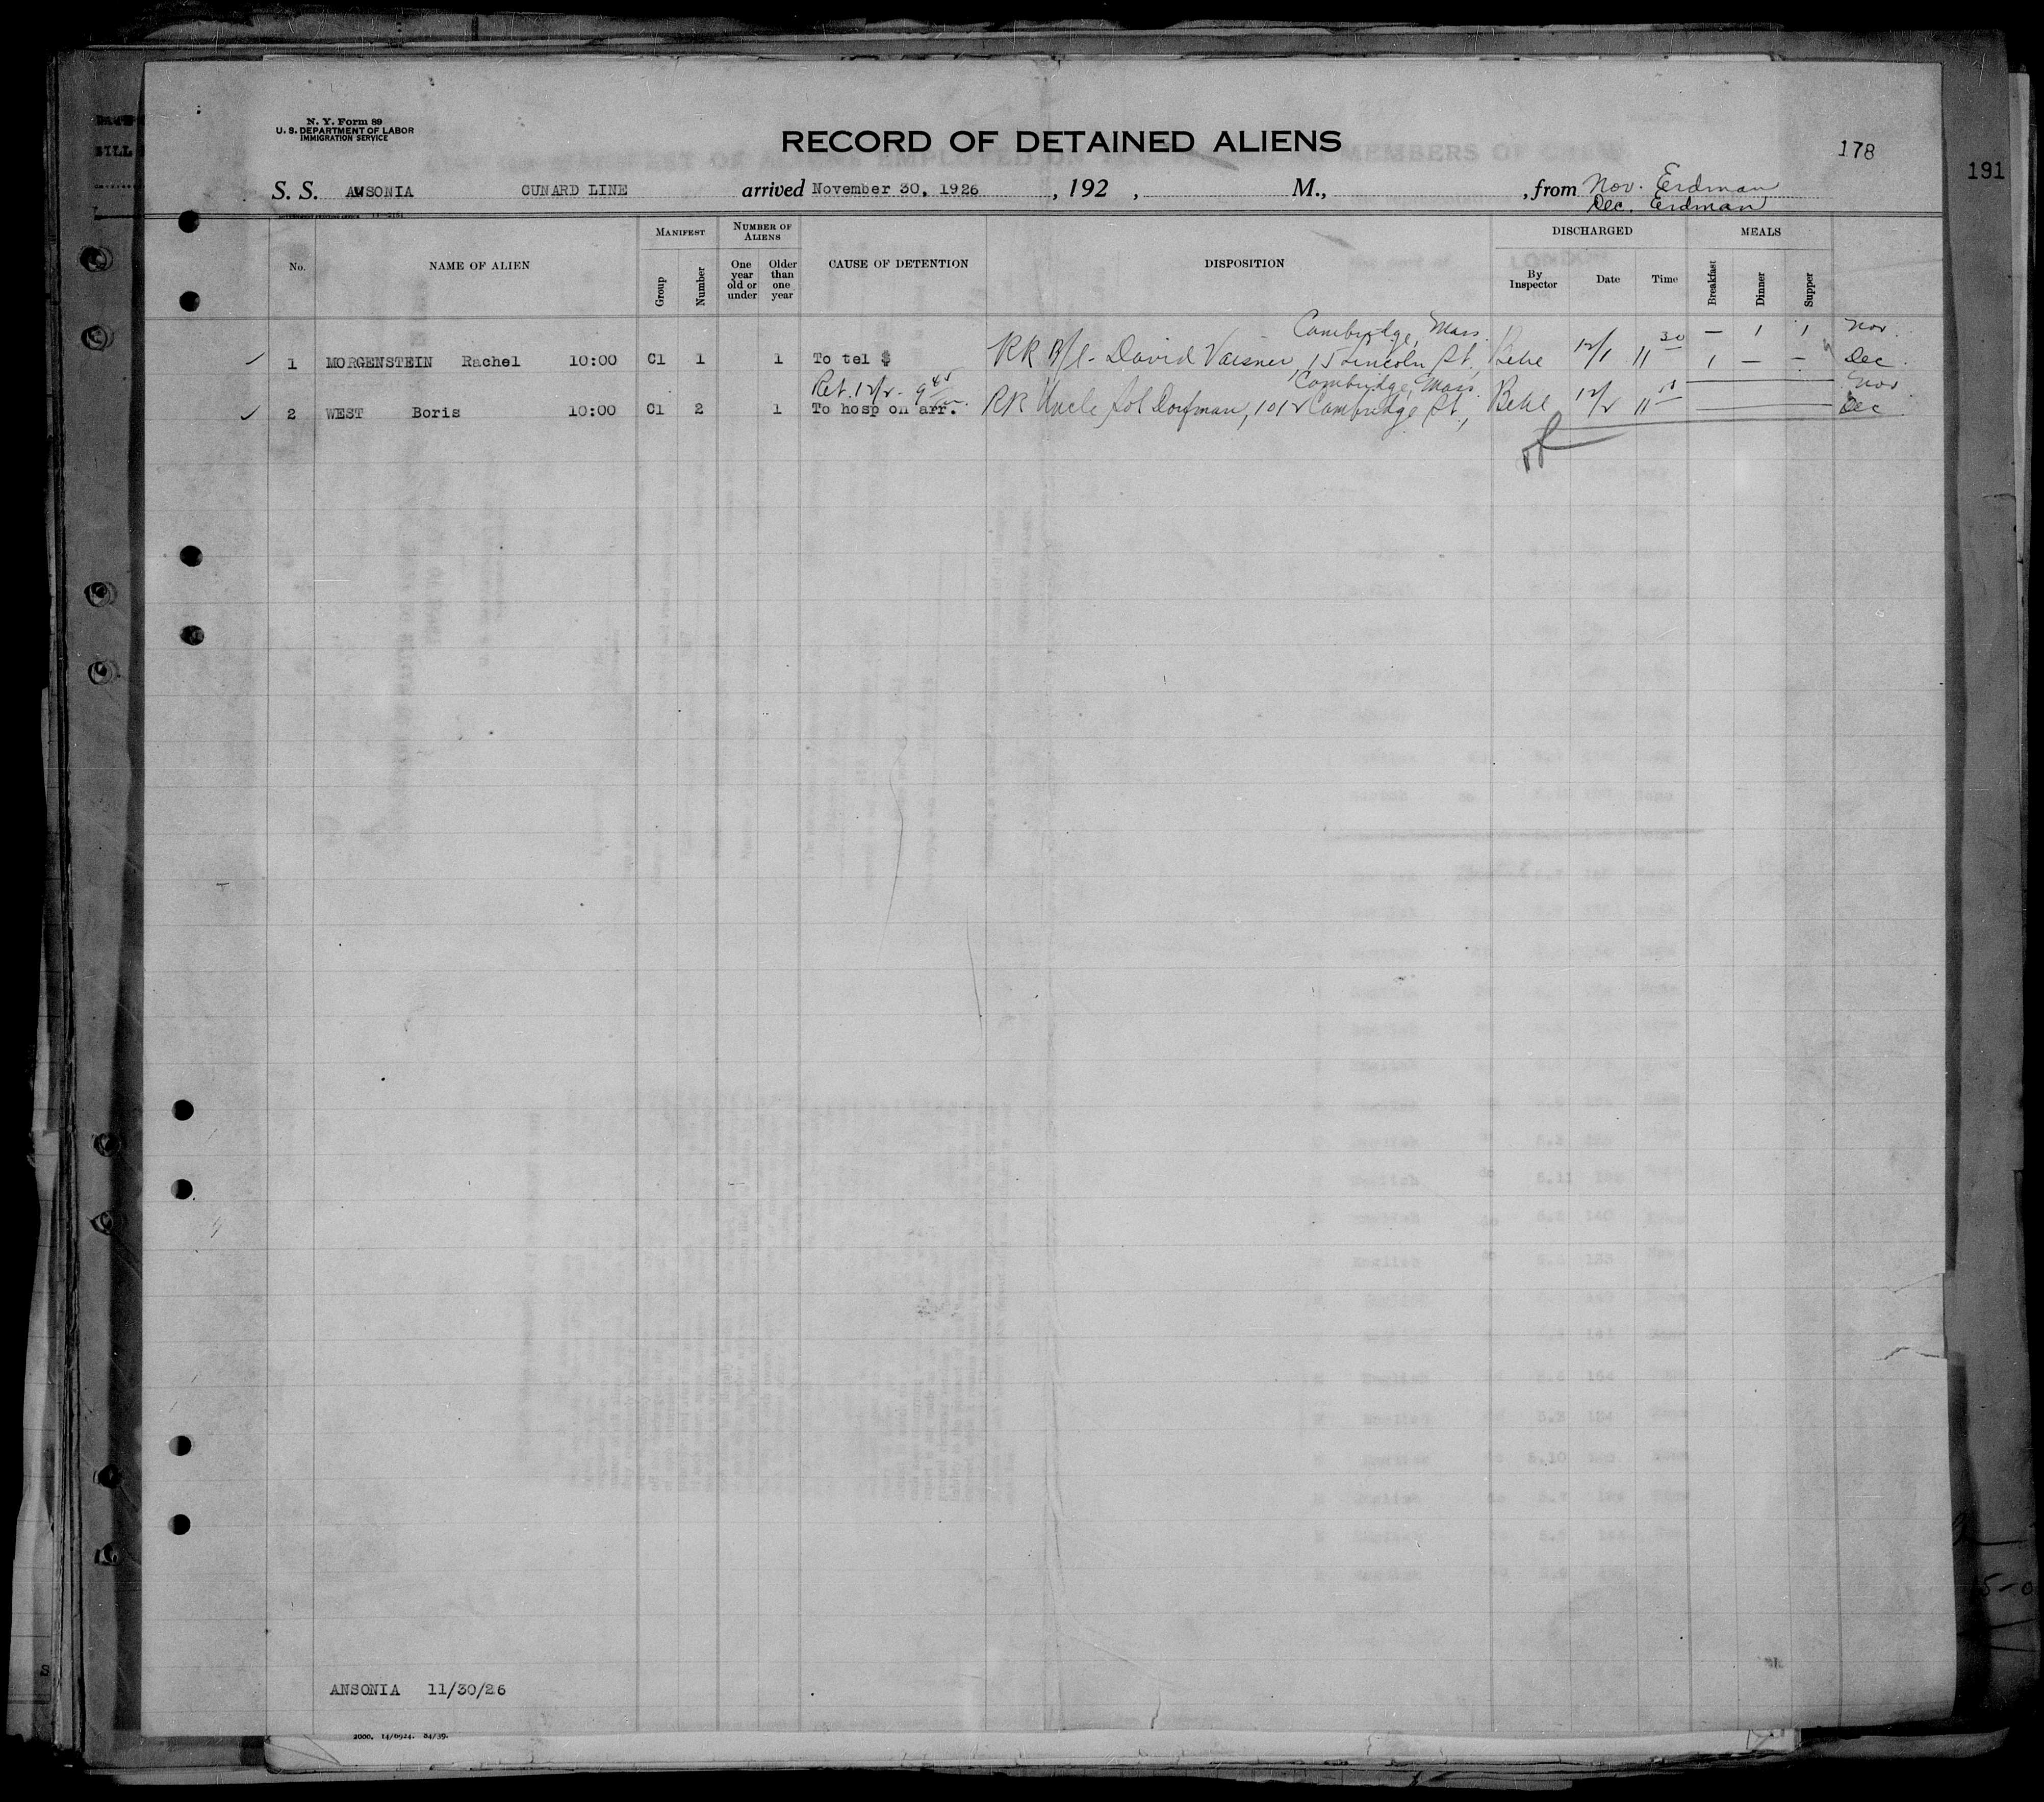 N. Y. Form 89
U. S. DEPARTMENT OF LABOR
IMMIGRATION SERVICE
RECORD OF DETAINED ALIENS
178
191
S. S. AUSONIA CUNARD LINE arrived November 30, 1926, 192 , M., , from Nov. Erdman
Dec. Erdman
No. NAME OF ALIEN MANIFEST Group Number NUMBER OF ALIENS One year old or under Older than one year CAUSE OF DETENTION DISPOSITION DISCHARGED By Inspector Date Time MEALS Breakfast Dinner Supper
Cambridge, Mass. 30 — 1 1 Nov.
1 MORGENSTEIN Rachel 10:00 C1 1 1 To tel $ RR B/l- David Vaisner, 15 Lincoln St, 12/1 11 1 — — Dec.
Ret. 12/2 - 9 45 Cambridge, Mass. Nov
2 WEST Boris 10:00 C1 2 1 To hosp on arr. RR Uncle Sol Dorfman, 1012 Cambridge St., 12/2 11 Dec
ANSONIA 11/30/26
2000. 14/6924. 24/39.